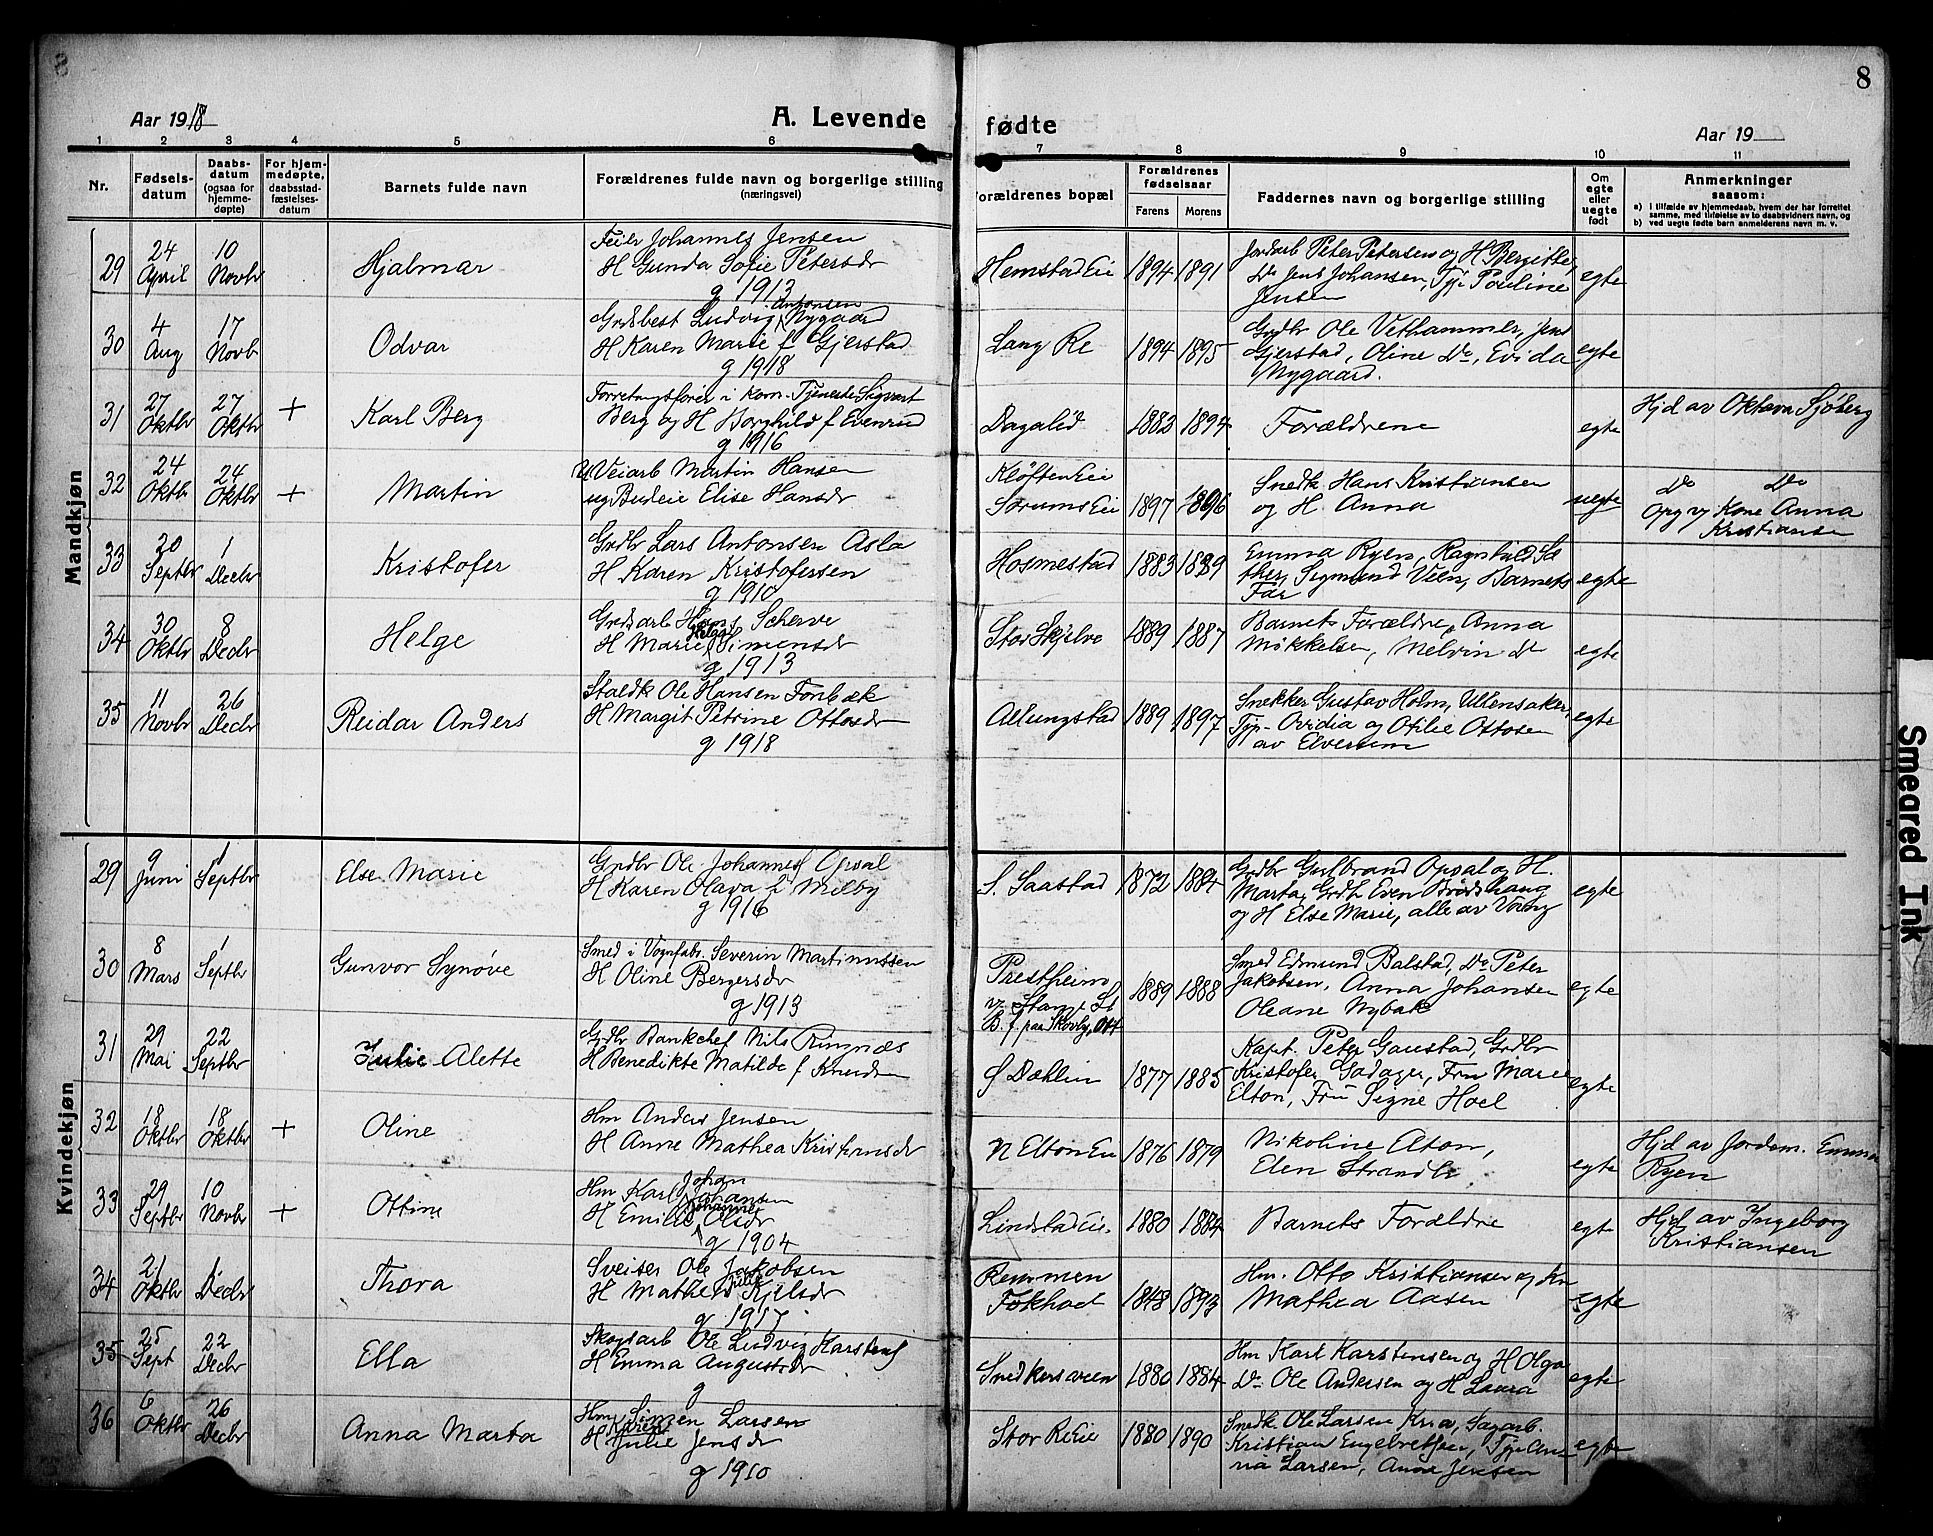 8
8
Aar 1918
A. Levende fødte
Aar 19
1 2 3 4 5 6 7 8 9 10 11
Nr.
Fødselsdatum
Daabsdatum (ogsaa for hjemmedøpte)
For hjemmedøpte, daabsstadfæstelsesdatum
Barnets fulde navn
Forældrenes fulde navn og borgerlige stilling (næringsvei)
Forældrenes bopæl
Forældrenes fødselsaar
Farens Morens
Faddernes navn og borgerlige stilling
Om egte eller uegte født
Anmerkninger saasom:
a) I tilfælde av hjemmedaab, hvem der har forrettet samme, med tilføielse av to daabsvidners navn, og
b) ved uegte fødte barn anmelderens navn m. v.
Mandkjøn
29 24 April 10 Novbr Hjalmar
Feier Johannes Jensen
H Gunda Sofie Petersdr
g 1913
Hemstad Eie 1894 1891
Jordarb Peter Petersen og H Bergitte,
Do Jens Johansen, Tj. Pauline
Jensen
egte
30 4 Aug 17 Novb Odvar
Grdsbest Ludvig Antonsen Nygaard
H Karen Marie f Gjerstad
g 1918
Lang Re 1894 1895
Grdbr Ole Vethammer, Jens
Gjerstad, Oline Do, Evida
Nygaard.
egte
31 27 Oktbr 27 Oktbr + Karl Berg
Forretngsfører i kom. Tjeneste Sigvart
Berg og H Borghild f Evenrud
g 1916
Dagalid 1883 1894
Forældrene
egte
Hjd av Oktava Sjöberg
32 24 Oktb 24 Oktbr + Martin
U Veiarb Martin Hansen
ug Budeie Elise Hansdr
Kløften Eie
Sørums Eie 1897 1896
Snedk Hans Kristiansen
og H. Anna
uegte
Do Do
Opg v Kone Anna
Kristiansen
33 20 Septbr 1 Decbr Kristofer
Grdbr Lars Antonsen Asla
H Karen Kristofersen
g 1910
Hosmestad 1883 1889
Emma Ryen, Ragnhild Sæ
ther, Sigmund Veen, Barnets
Far
egte
34 30 Oktbr 8 Decbr Helge
Grdsarb Hans Scherve
H Marie Helga Simensdr
g 1913
Stor Skjelve 1889 1887
Barnets Forældre, Anna
Mikkelsen, Melvin Do
egte
35 11 Novbr 26 Decbr Reidar Anders
Staldk Ole Hansen Fonbæk
H Margit Petrine Ottosdr
g 1918
Allungstad 1889 1897
Snekker Gustav Holm, Ullensaker,
Typ. Ovidia og Otilie Ottosen
av Elverum
egte
Kvindekjøn
29 9 Juni 1 Septbr Else Marie
Grdbr Ole Johannes Opsal
H Karen Olava f Milby
g 1916
S. Saastad 1872 1884
Grdbr Gulbrand Opsal og H.
Marta, Grdb Even Brødshaug
og H Else Marie, alle av Vang
egte
30 8 Mars 1 Septbr Gunvor Synøve
Smed i Vognfabr. Severin Martinussen
H Oline Bergersdr
g 1913
Prestheim
v Stange St
B. f. paa Skovly, Ott 1889 1888
Smed Edmund Balstad, Do Peter
Jakobsen, Anna Johansen
Oleane Nybak
egte
31 29 Mai 22 Septbr Julie Alette
Grdbr Bankchef Nils Ringnæs
H Benedikte Matilde f Knudsen
S Dæhlin 1877 1885
Kapt. Peter Gaustad, Grdbr
Kristofer Gadager, Fru Marie
Elton, Fru Signe Hoel
egte
32 18 Oktbr 18 Oktbr + Oline
Hm Anders Jensen
H Anne Mathea Kristensdr
N Elton Eie 1876 1879
Nikoline Elton,
Elen Strandli
egte
Hjd av Jordem. Emma
Ryen
33 29 Septbr 10 Novbr + Ottine
Hm Karl Johan Johansen
H Emilie Johanne Olsdr
g 1904
Lindstad Eie. 1880 1884
Barnets Forældre
egte
Hjd av Ingeborg
Kristiansen
34 21 Oktbr 1 Decbr Thora
Sveiser Ole Jakobsen
H Mathea Julie Kjelsdr
g 1917
Remmen
Tokstad 1848 1893
Hm. Otto Kristiansen og Kn
Mathea Aasen
egte
35 25 Sept 22 Decbr Ella
Skogsarb Ole Ludvig Karstens
H Emma Augustsdr
g
Snedkersveen 1880 1884
Hm Karl Karstensen og H Olga
Do Ole Andersen og H Laura
egte
36 6 Oktbr 26 Decbr Anna Marta
Hm Simen Larsen
H Karen Julie Jensdr
g 1910
Stor Re Eie 1880 1890
Snedk Ole Larsen Kria, Sagarb.
Kristian Engebretsen, Tjp An
na Larsen, Anne Jensen
egte
Smeared Ink